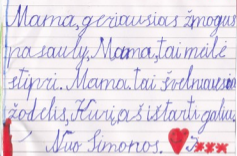 Mama, geriausias žmogus
pasauly, Mama, tai meilė
stipri. Mama tai švelniausias
žodelis, Kurį aš ištarti galiu.
Nuo Simonos.